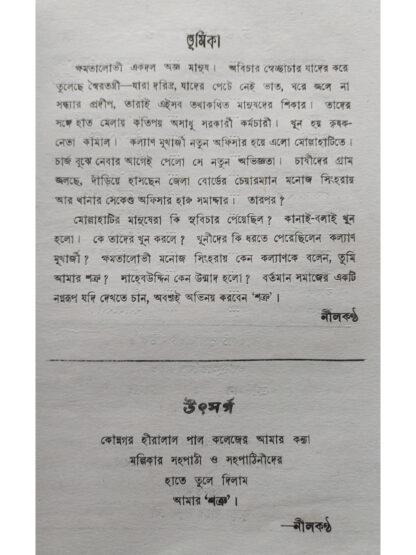 ভূমিকা
ক্ষমতালোভী একদল অজ্ঞ মানুষ। অবিচার স্বেচ্ছাচার যাদের করে
তুলেছে স্বৈরতন্ত্রী—যারা দরিদ্র, যাদের পেটে নেই ভাত, ঘরে জ্বলে না
সন্ধ্যার প্রদীপ, তারাই এইসব তথাকথিত মানুষদের শিকার। তাদের
সঙ্গে হাত মেলায় কতিপয় অসাধু সরকারী কর্মচারী। খুন হয় কৃষক-
নেতা কামাল। কল্যাণ মুখার্জী নতুন অফিসার হয়ে এলো মোল্লাহাটিতে।
চার্জ বুঝে নেবার আগেই পেলো সে নতুন অভিজ্ঞতা। চাষীদের গ্রাম
জ্বলছে, দাঁড়িয়ে হাসছেন জেলা বোর্ডের চেয়ারম্যান মনোজ সিংহরায়
আর থানার সেকেণ্ড অফিসার হারু সমাদ্দার। তারপর?
মোল্লাহাটির মানুষেরা কি সুবিচার পেয়েছিল? কানাই-বলাই খুন
হলো। কে তাদের খুন করলে? খুনীদের কি ধরতে পেরেছিলেন কল্যাণ
মুখার্জী? ক্ষমতালোভী মনোজ সিংহরায় কেন কল্যাণকে বলেন, তুমি
আমার শত্রু? সাহেবউদ্দিন কেন উন্মাদ হলো? বর্তমান সমাজের একটি
নগ্নরূপ যদি দেখতে চান, অবশ্যই অভিনয় করবেন ‘শত্রু’।
—নীলকণ্ঠ
উৎসর্গ
কোন্নগর হীরালাল পাল কলেজের আমার কন্যা
মল্লিকার সহপাঠী ও সহপাঠিনীদের
হাতে তুলে দিলাম
আমার ‘শত্রু’।
—নীলকণ্ঠ